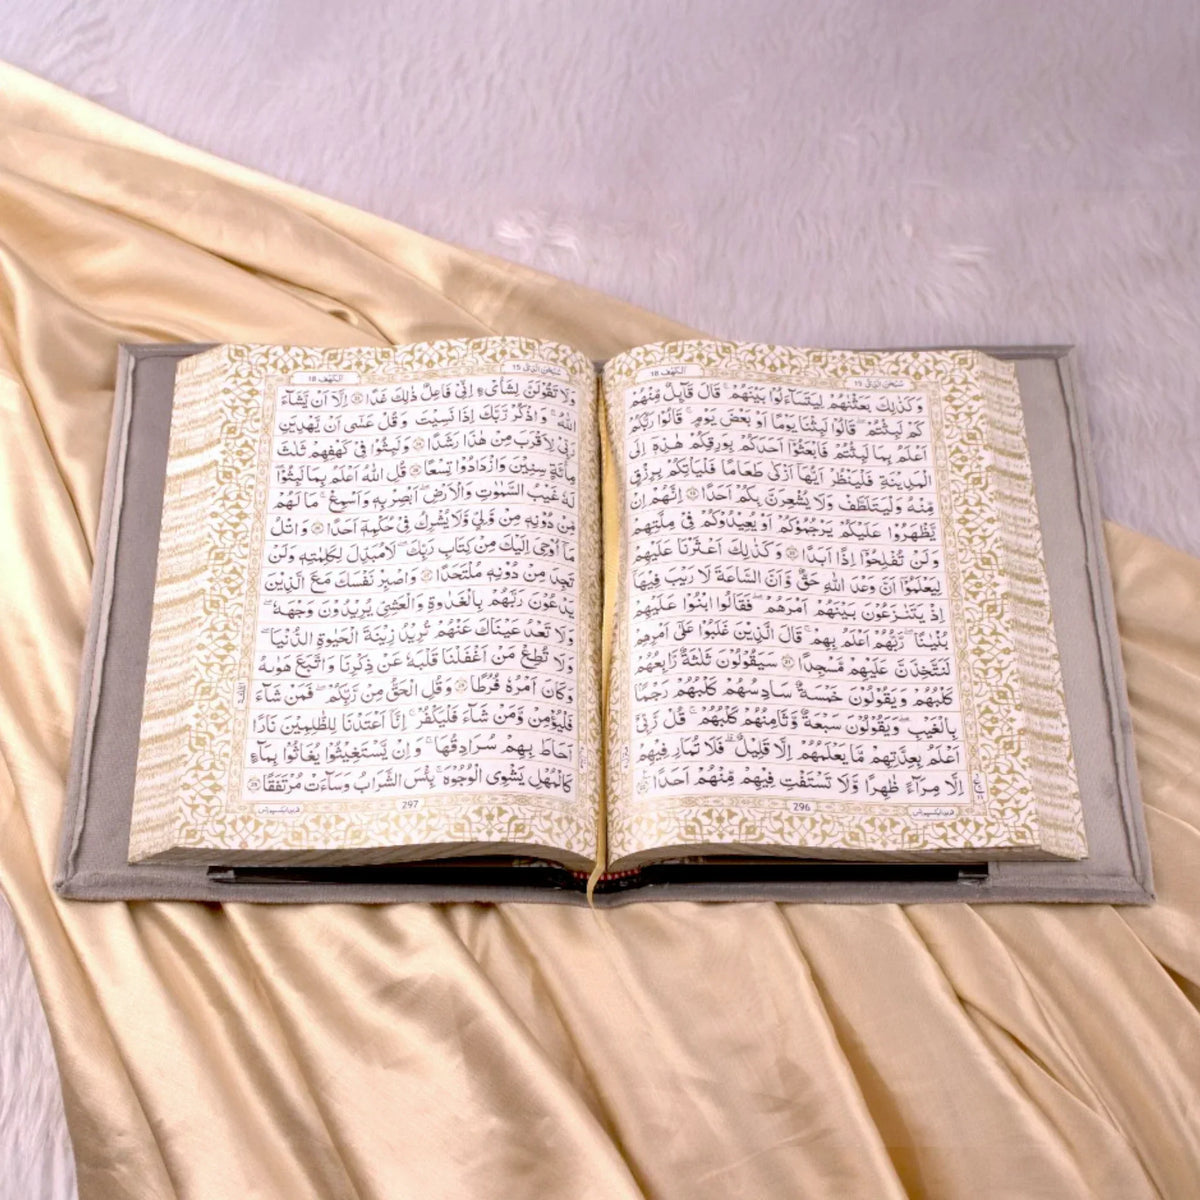 سُبْحٰنَ الَّذِیْ 15
الْكَهْف 18
وَكَذٰلِكَ بَعَثْنٰهُمْ لِيَتَسَآءَلُوْا بَيْنَهُمْ ۚ قَالَ قَآئِلٌ مِّنْهُمْ
كَمْ لَبِثْتُمْ ۗ قَالُوْا لَبِثْنَا يَوْمًا اَوْ بَعْضَ يَوْمٍ ۚ قَالُوْا رَبُّكُمْ
اَعْلَمُ بِمَا لَبِثْتُمْ فَابْعَثُوْۤا اَحَدَكُمْ بِوَرِقِكُمْ هٰذِهٖۤ اِلَى
الْمَدِيْنَةِ فَلْيَنْظُرْ اَيُّهَاۤ اَزْكٰى طَعَامًا فَلْيَاْتِكُمْ بِرِزْقٍ
مِّنْهُ وَلْيَتَلَطَّفْ وَلَا يُشْعِرَنَّ بِكُمْ اَحَدًا ﴿۱۹﴾ اِنَّهُمْ اِنْ
يَّظْهَرُوْا عَلَيْكُمْ يَرْجُمُوْكُمْ اَوْ يُعِيْدُوْكُمْ فِيْ مِلَّتِهِمْ
وَلَنْ تُفْلِحُوْۤا اِذًا اَبَدًا ﴿۲۰﴾ وَكَذٰلِكَ اَعْثَرْنَا عَلَيْهِمْ
لِيَعْلَمُوْۤا اَنَّ وَعْدَ اللّٰهِ حَقٌّ وَّاَنَّ السَّاعَةَ لَا رَيْبَ فِيْهَا
اِذْ يَتَنَازَعُوْنَ بَيْنَهُمْ اَمْرَهُمْ فَقَالُوا ابْنُوْا عَلَيْهِمْ
بُنْيَانًا ۗ رَبُّهُمْ اَعْلَمُ بِهِمْ ۚ قَالَ الَّذِيْنَ غَلَبُوْا عَلٰۤى اَمْرِهِمْ
لَنَتَّخِذَنَّ عَلَيْهِمْ مَّسْجِدًا ﴿۲۱﴾ سَيَقُوْلُوْنَ ثَلٰثَةٌ رَّابِعُهُمْ
كَلْبُهُمْ وَيَقُوْلُوْنَ خَمْسَةٌ سَادِسُهُمْ كَلْبُهُمْ رَجْمًۢا
بِالْغَيْبِ ۚ وَيَقُوْلُوْنَ سَبْعَةٌ وَّثَامِنُهُمْ كَلْبُهُمْ ۚ قُلْ رَّبِّيْۤ
اَعْلَمُ بِعِدَّتِهِمْ مَّا يَعْلَمُهُمْ اِلَّا قَلِيْلٌ ۫ فَلَا تُمَارِ فِيْهِمْ
اِلَّا مِرَآءً ظَاهِرًا وَّلَا تَسْتَفْتِ فِيْهِمْ مِّنْهُمْ اَحَدًا ﴿۲۲﴾
296
سُبْحٰنَ الَّذِیْ 15
الْكَهْف 18
وَلَا تَقُوْلَنَّ لِشَاْيْءٍ اِنِّيْ فَاعِلٌ ذٰلِكَ غَدًا ﴿۲۳﴾ اِلَّاۤ اَنْ يَّشَآءَ
اللّٰهُ ۚ وَاذْكُرْ رَّبَّكَ اِذَا نَسِيْتَ وَقُلْ عَسٰۤى اَنْ يَّهْدِيَنِ
رَبِّيْ لِاَقْرَبَ مِنْ هٰذَا رَشَدًا ﴿۲۴﴾ وَلَبِثُوْا فِيْ كَهْفِهِمْ ثَلٰثَ
مِائَةٍ سِنِيْنَ وَازْدَادُوْا تِسْعًا ﴿۲۵﴾ قُلِ اللّٰهُ اَعْلَمُ بِمَا لَبِثُوْا ۚ
لَهٗ غَيْبُ السَّمٰوٰتِ وَالْاَرْضِ ۗ اَبْصِرْ بِهٖ وَاَسْمِعْ ۗ مَا لَهُمْ
مِّنْ دُوْنِهٖ مِنْ وَّلِيٍّ وَّلَا يُشْرِكُ فِيْ حُكْمِهٖۤ اَحَدًا ﴿۲۶﴾ وَاتْلُ
مَاۤ اُوْحِيَ اِلَيْكَ مِنْ كِتَابِ رَبِّكَ ۚ لَا مُبَدِّلَ لِكَلِمٰتِهٖ وَلَنْ
تَجِدَ مِنْ دُوْنِهٖ مُلْتَحَدًا ﴿۲۷﴾ وَاصْبِرْ نَفْسَكَ مَعَ الَّذِيْنَ
يَدْعُوْنَ رَبَّهُمْ بِالْغَدٰوةِ وَالْعَشِيِّ يُرِيْدُوْنَ وَجْهَهٗ
وَلَا تَعْدُ عَيْنٰكَ عَنْهُمْ ۚ تُرِيْدُ زِيْنَةَ الْحَيٰوةِ الدُّنْيَا ۚ
وَلَا تُطِعْ مَنْ اَغْفَلْنَا قَلْبَهٗ عَنْ ذِكْرِنَا وَاتَّبَعَ هَوٰىهُ
وَكَانَ اَمْرُهٗ فُرُطًا ﴿۲۸﴾ وَقُلِ الْحَقُّ مِنْ رَّبِّكُمْ ۫ فَمَنْ شَآءَ
فَلْيُؤْمِنْ وَّمَنْ شَآءَ فَلْيَكْفُرْ ۙ اِنَّاۤ اَعْتَدْنَا لِلظّٰلِمِيْنَ نَارًا ۙ
اَحَاطَ بِهِمْ سُرَادِقُهَا ۗ وَاِنْ يَّسْتَغِيْثُوْا يُغَاثُوْا بِمَآءٍ
كَالْمُهْلِ يَشْوِي الْوُجُوْهَ ۗ بِئْسَ الشَّرَابُ ۗ وَسَآءَتْ مُرْتَفَقًا ﴿۲۹﴾
297